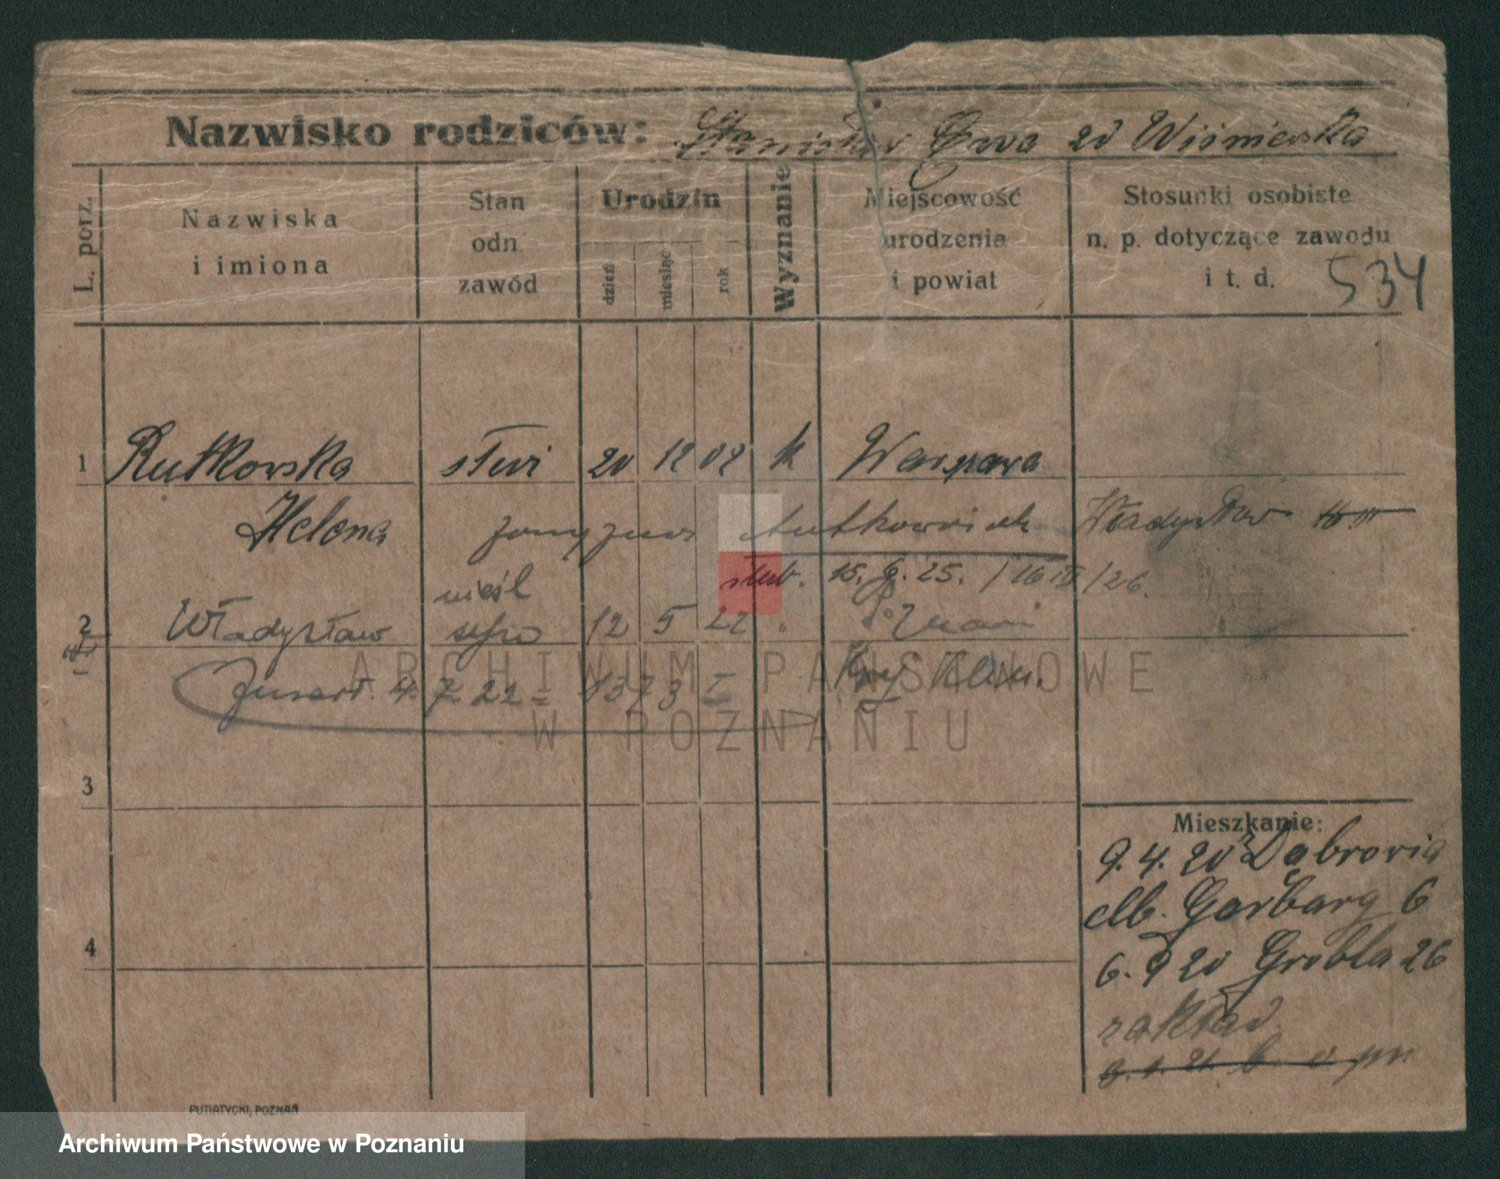 Nazwisko rodziców: Stanisław Ewa zd Wiśniewska
L. porz.
Nazwiska
i imiona
Stan
odn.
zawód
Urodzin
dzień
miesiąc
rok
Wyznanie
Miejscowość
urodzenia
i powiat
Stosunki osobiste
n. p. dotyczące zawodu
i t. d.
534
1 Rutkowska służ 20 12 02 k Warszawa
Helena Rutkowiak Władysław
ślub. 15. 9. 25. /26.
nieśl
2 Władysław 12 5 22
4. 7. 22 1373 I
3
4
Mieszkanie:
9. 4. 20 z Dąbrowia
Garbary 6
6. 9 20 Grobla 26
zakład
PUTIATYCKI, POZNAŃ
ARCHIWUM PAŃSTWOWE
W POZNANIU
Archiwum Państwowe w Poznaniu